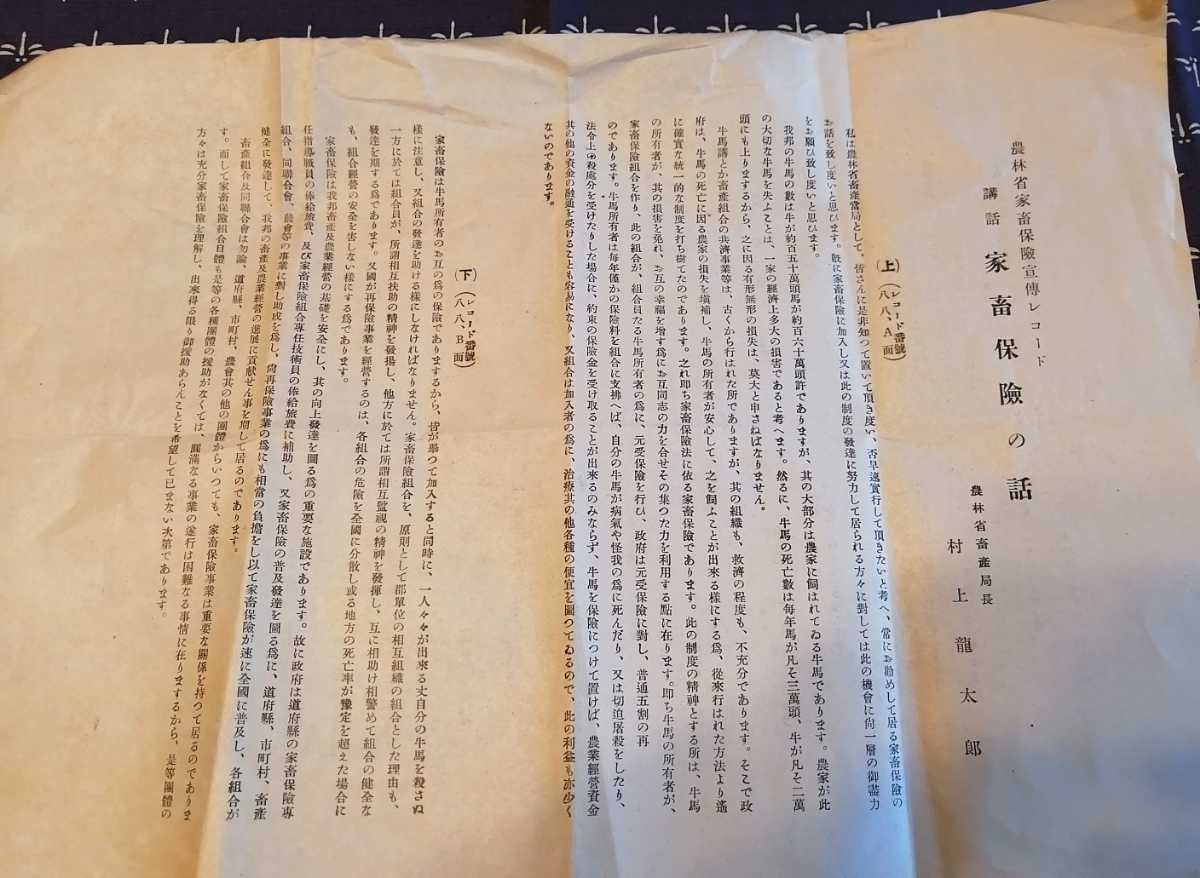 農林省家畜保險宣傳レコード
講話 家畜保險の話
農林省畜產局長
村上龍太郎
(上)(レコード番號八八、A面)
私は農林省畜產當局として、皆さんに是非知つて置いて頂き度い、否早速實行して頂きたいと考へ、常にお勸めして居る家畜保險の
お話を致し度いと思ひます。旣に家畜保險に加入し又は此の制度の發達に努力して居られる方々に對しては此の機會に尙一層の御盡力
をお願ひ致し度いと思ひます。
我邦の牛馬の數は牛が約百五十萬頭馬が約百六十萬頭許でありますが、其の大部分は農家に飼はれてゐる牛馬であります。農家が此
の大切な牛馬を失ふことは、一家の經濟上多大の損害であると考へます。然るに、牛馬の死亡數は每年馬が凡そ三萬頭、牛が凡そ二萬
頭にも上りまするから、之に因る有形無形の損失は、莫大と申さねばなりません。
牛馬講とか畜產組合の共濟事業等は、古くから行はれた所でありますが、其の組織も、救濟の程度も、不充分であります。そこで政
府は、牛馬の死亡に因る農家の損失を塡補し、牛馬の所有者が安心して、之を飼ふことが出來る樣にする爲、從來行はれた方法より遙
に確實な統一的な制度を打ち樹てたのであります。之れ卽ち家畜保險法に依る家畜保險であります。此の制度の精神とする所は、牛馬
の所有者が、其の損害を免れ、お互の幸福を增す爲にお互同志の力を合せその集つた力を利用する點に在ります。卽ち牛馬の所有者が、
家畜保險組合を作り、此の組合が、組合員たる牛馬所有者の爲に、元受保險を行ひ、政府は元受保險に對し、普通五割の再
のであります。牛馬所有者は每年僅かの保險料を組合に支拂へば、自分の牛馬が病氣や怪我の爲に死んだり、又は切迫屠殺をしたり、
法令上の殺處分を受けたりした場合に、約束の保險金を受け取ることが出來るのみならず、牛馬を保險につけて置けば、農業經營資金
其の他の資金の融通を受けることも容易になり、又組合は加入者の爲に、治療其の他各種の便宜を圖つてゐるので、此の利益も亦少く
ないのであります。
(下)(レコード番號八八、B面)
家畜保險は牛馬所有者のお互の爲の保險でありまするから、皆が擧つて加入すると同時に、一人々々が出來る丈自分の牛馬を殺さぬ
樣に注意し、又組合の發達を助ける樣にしなければなりません。家畜保險組合を、原則として郡單位の相互組織の組合とした理由も、
一方に於ては組合員が、所謂相互扶助の精神を發揚し、他方に於ては所謂相互監視の精神を發揮し、互に相助け相警めて組合の健全な
發達を期する爲であります。又國が再保險事業を經營するのは、各組合の危險を全國に分散し或る地方の死亡率が豫定を超えた場合に
も、組合經營の安全を害しない樣にする爲であります。
家畜保險は我邦畜產及農業經營の基礎を安全にし、其の向上發達を圖る爲の重要な施設であります。故に政府は道府縣の家畜保險專
任指導職員の俸給旅費、及び家畜保險組合專任技術員の俸給旅費に補助し、又家畜保險の普及發達を圖る爲に、道府縣、市町村、畜產
組合、同聯合會、農會等の事業に對し助成を爲し、尙再保險事業の爲にも相當の負擔をし以て家畜保險が速に全國に普及し、各組合が
健全に發達して、我邦の畜產及農業經營の進展に貢獻せん事を期して居るのであります。
畜產組合及同聯合會は勿論、道府縣、市町村、農會其の他の團體からいつても、家畜保險事業は重要な關係を持つて居るのでありま
す。而して家畜保險組合自體も是等の各種團體の援助がなくては、圓滿なる事業の遂行は困難なる事情に在りまするから、是等團體の
方々は充分家畜保險を理解し、出來得る限り御援助あらんことを希望して已まない次第であります。